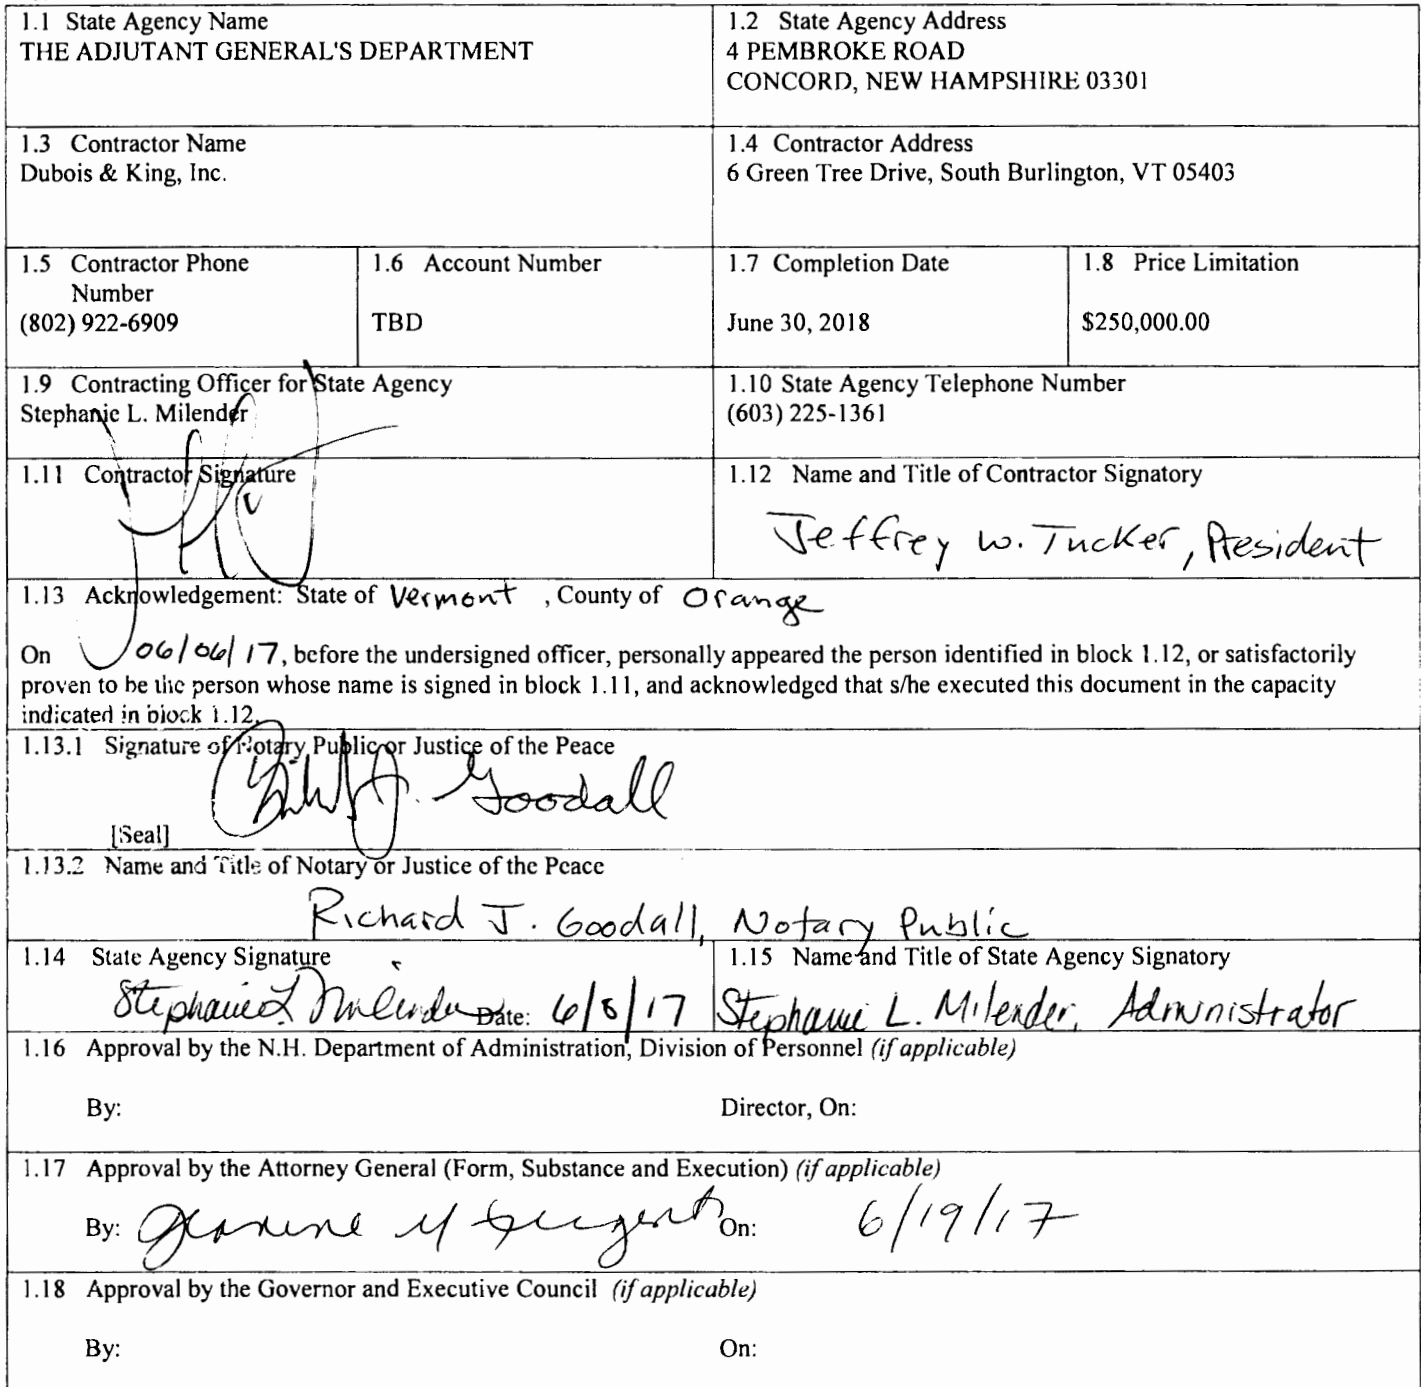 1.1 State Agency Name
THE ADJUTANT GENERAL'S DEPARTMENT
1.2 State Agency Address
4 PEMBROKE ROAD
CONCORD, NEW HAMPSHIRE 03301
1.3 Contractor Name
Dubois & King, Inc.
1.4 Contractor Address
6 Green Tree Drive, South Burlington, VT 05403
1.5 Contractor Phone
Number
(802) 922-6909
1.6 Account Number
TBD
1.7 Completion Date
June 30, 2018
1.8 Price Limitation
$250,000.00
1.9 Contracting Officer for State Agency
Stephanie L. Milender
1.10 State Agency Telephone Number
(603) 225-1361
1.11 Contractor Signature
1.12 Name and Title of Contractor Signatory
Jeffrey W. Tucker, President
1.13 Acknowledgement: State of Vermont , County of Orange
On 06/06/17, before the undersigned officer, personally appeared the person identified in block 1.12, or satisfactorily
proven to be the person whose name is signed in block 1.11, and acknowledged that s/he executed this document in the capacity
indicated in block 1.12.
1.13.1 Signature of Notary Public or Justice of the Peace
J. Goodall
[Seal]
1.13.2 Name and Title of Notary or Justice of the Peace
Richard J. Goodall, Notary Public
1.14 State Agency Signature
Stephanie L Milender Date: 6/8/17
1.15 Name and Title of State Agency Signatory
Stephanie L. Milender, Administrator
1.16 Approval by the N.H. Department of Administration, Division of Personnel (if applicable)
By: Director, On:
1.17 Approval by the Attorney General (Form, Substance and Execution) (if applicable)
By: On: 6/19/17
1.18 Approval by the Governor and Executive Council (if applicable)
By: On: